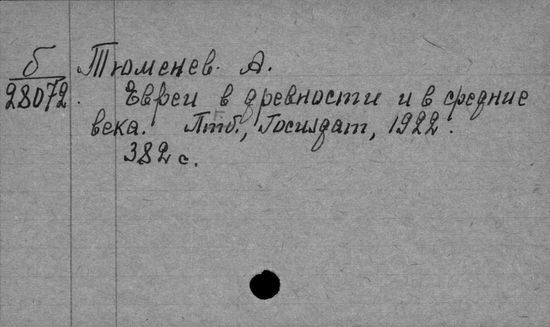 б Тюменев. А.
28072. Евреи в древности и в средние
века. Птб., Госиздат, 1922.
382 с.